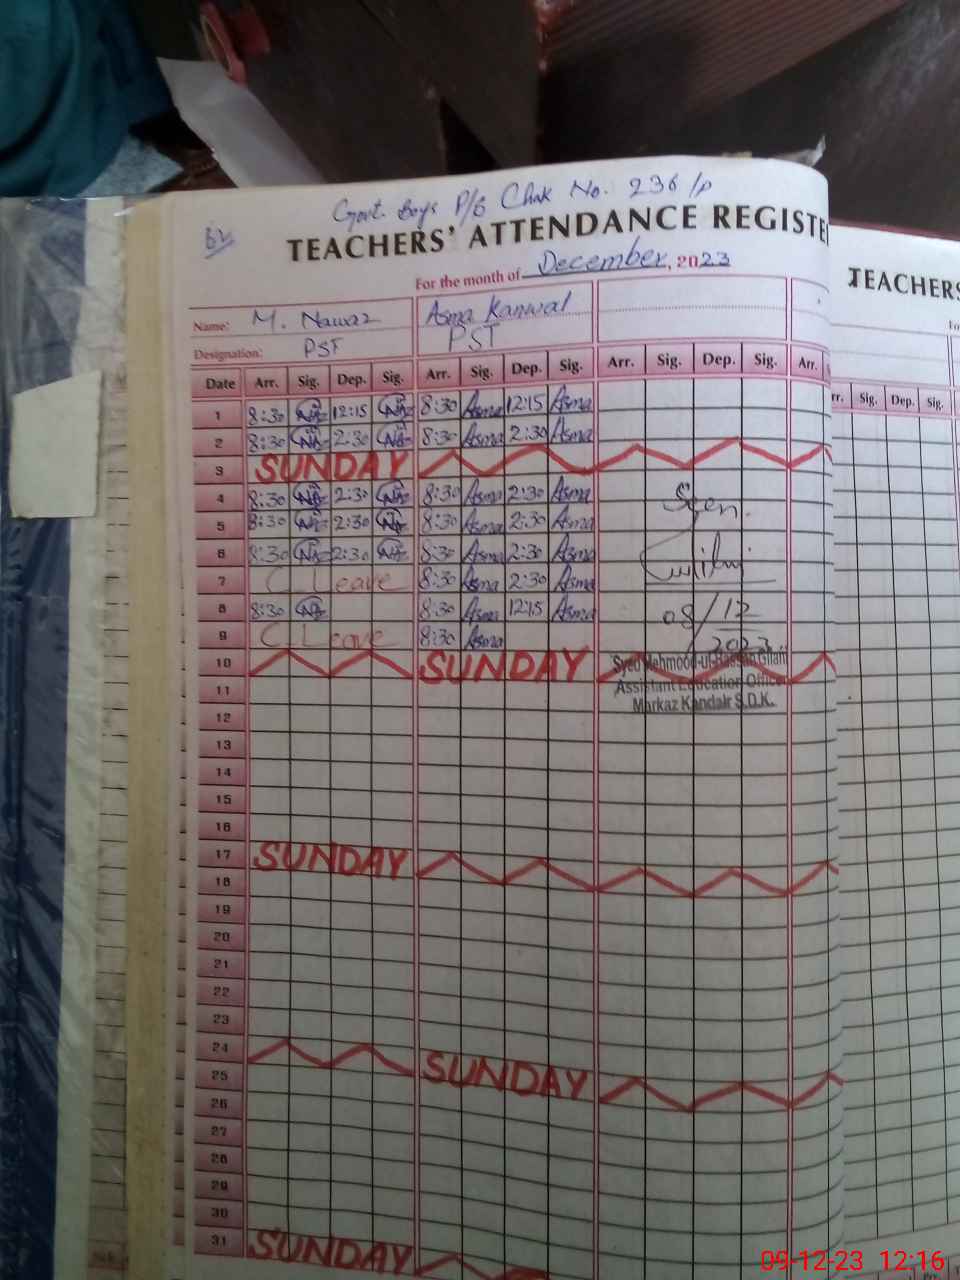 Govt. Boys P/S Chak No. 236/P
TEACHERS' ATTENDANCE REGISTE
For the month of December, 2023
Name: M. Nawaz Asma Kanwal
Designation: PST PST
Date Arr. Sig. Dep. Sig. Arr. Sig. Dep. Sig. Arr. Sig. Dep. Sig. Arr.
1 8:30 12:15 8:30 Asma 12:15 Asma
2 8:30 2:30 8:30 Asma 2:30 Asma
3 SUNDAY
4 8:30 2:30 8:30 Asma 2:30 Asma Seen.
5 8:30 2:30 8:30 Asma 2:30 Asma
6 8:30 2:30 8:30 Asma 2:30 Asma
7 C Leave 8:30 Asma 2:30 Asma
8 8:30 8:30 Asma 12:15 Asma 08/12
9 C Leave 8:30 Asma 2023
10 SUNDAY Syed Mehmood-ul-Hassan Gilani
11 Assistant Education Officer
Markaz Kandair S.D.K.
12
13
14
15
16
17 SUNDAY
18
19
20
21
22
23
24
25 SUNDAY
26
27
28
29
30
31 SUNDAY
TEACHERS
Arr. Sig. Dep. Sig.
09-12-23 12:16